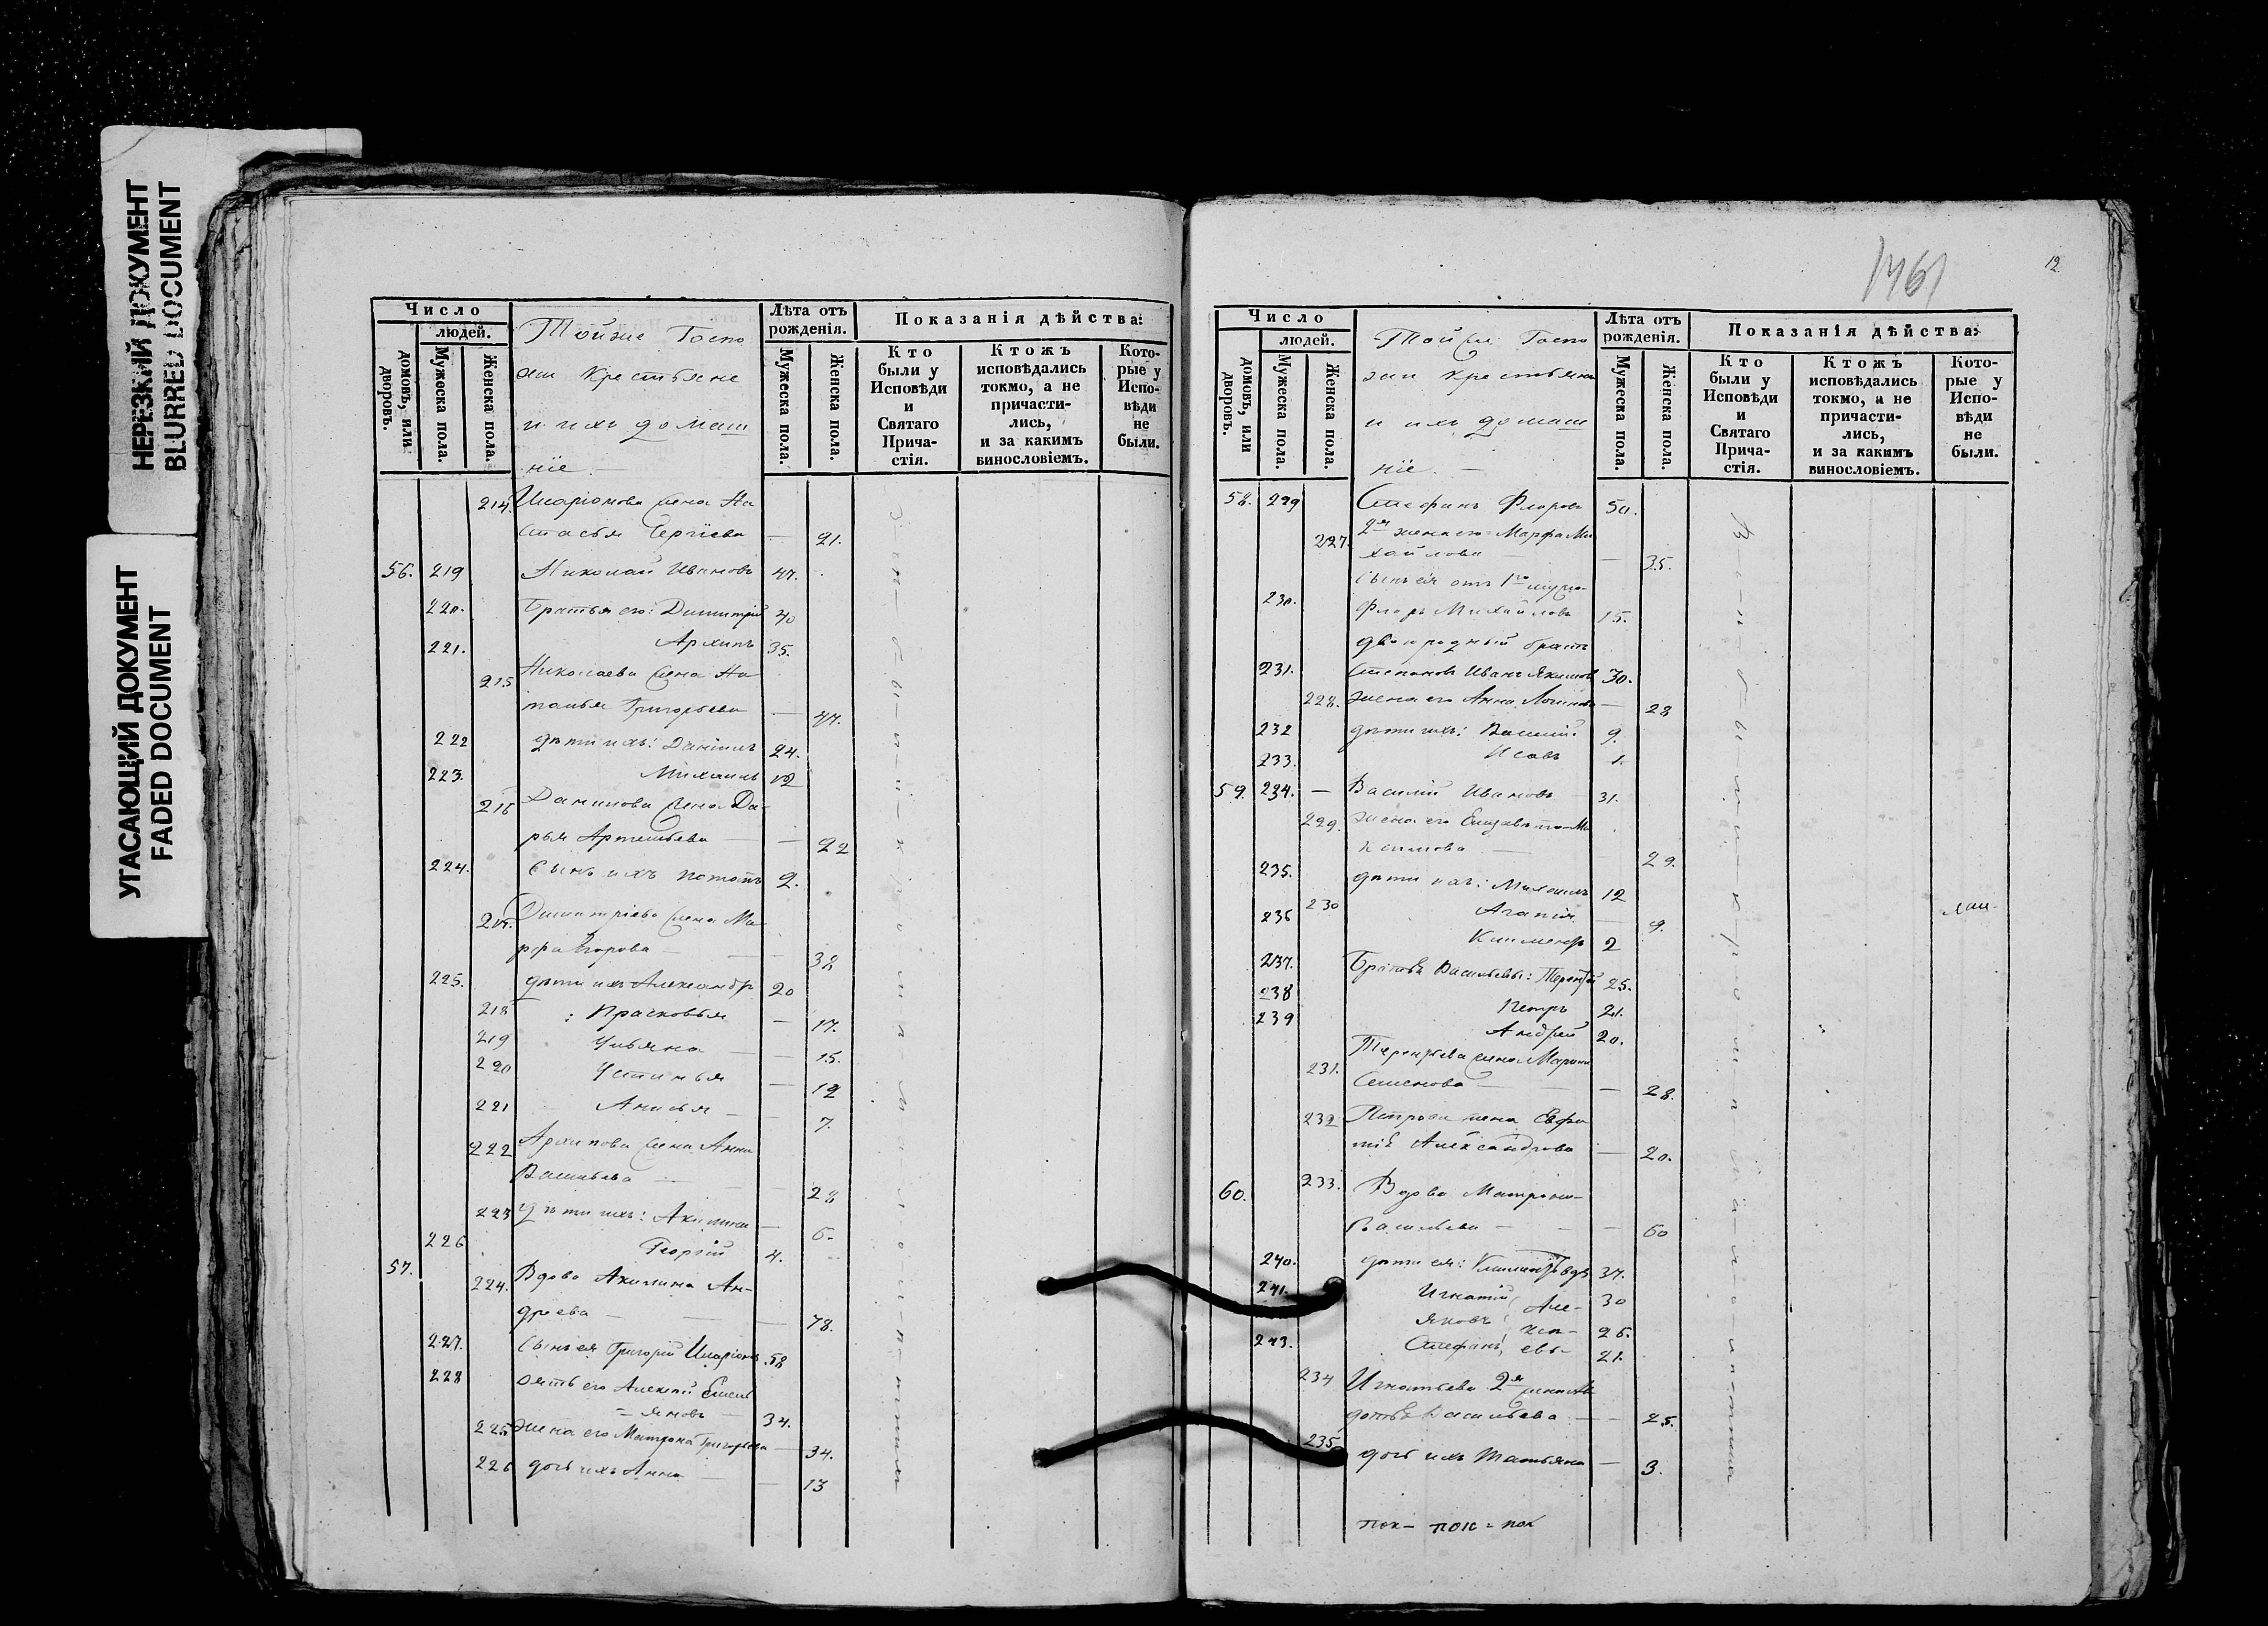 НЕРЕЗКИЙ ДОКУМЕНТ
BLURRED DOCUMENT
УГАСАЮЩИЙ ДОКУМЕНТ
FADED DOCUMENT
Число
людей.
домовъ, или дворовъ.
Мужеска пола.
Женска пола.
Тойже Госпо
жи крестьяне
и ихъ домаш
нїе
Лѣта отъ рожденія.
Мужеска пола.
Женска пола.
Показанія дѣйства:
Кто были у Исповѣди и Святаго Прича-стія.
Ктожъ исповѣдались токмо, а не причасти-лись, и за какимъ винословіемъ.
Кото-рые у Испо-вѣди не были.
214. Иларіонова жена На
стасья Сергїева — 21.
56. 219 Николай Ивановъ 47.
220. Братья его: Димитрій 40
221. Архипъ 35.
215 Николаева жена На
талья Григорьева — 47.
222 дѣти ихъ: Данїилъ 24.
223. Михаилъ 12
216 Данилова жена Да-
рья Артемьева — 22
224. сынъ ихъ 2.
217. Димитріева жена Ма-
рфа Егорова — 38
225. дѣти ихъ Александръ 20
218 : Прасковья — 17.
219 Ульяна — 15.
220 Устинья — 12
221 Анисья — 7.
222 Архипова жена Анна
Васильева — 28
223 дѣти ихъ: Акилина — 6.
226 Георгій 4.
57. 224. Вдова Акилина Ан-
дреева — 78.
227. сынъ ея Григорій Иларіоновъ 58
228 зять его Алексѣй Емель
= яновъ 34.
225 жена его Матрона Григорьева — 34.
226 дочь ихъ Анна — 13
1461
12
Число
людей.
домовъ, или дворовъ.
Мужеска пола.
Женска пола.
Тойже Госпо
жи крестьяне
и ихъ домаш
нїе. —
Лѣта отъ рожденія.
Мужеска пола.
Женска пола.
Показанія дѣйства:
Кто были у Исповѣди и Святаго Прича-стія.
Ктожъ исповѣдались токмо, а не причасти-лись, и за какимъ винословіемъ.
Кото-рые у Испо-вѣди не были.
58. 229 Стефанъ Флоровъ 50.
227. 2я жена его Марфа Ми
хайлова — 35.
сынъ ея отъ 1го мужа
230. Флоръ Михайловъ 15.
двоюродный братъ
231. Степановъ Иванъ Якимовъ 30.
228. жена его Анна Логинова — 28
232 дѣти ихъ: Василій 9.
233. Исавъ 1.
59. 234. — Василій Ивановъ 31.
229. жена его Елизавѣта Ма
ксимова — 29.
235. дѣти ихъ: Михаилъ 12
230 Агапія — 9.
236 Климентъ 2
237. Братья Васильевы: Терентїй 25.
238 Петръ 21.
239 Андрей 20.
231. Терентьева жена Марина
Семенова — 28.
232 Петрова жена Евфи
мія Александрова — 20.
60. 233. Вдова Матрона
Васильева — 60
240. дѣти ея: Климентъ вдъ 37.
241. Игнатїй Але- 30
Яковъ ксе- 26.
243. Стефанъ евы- 21.
234 Игнатьева 2я жена Ав
дотья Васильева — 25.
235 дочь ихъ Татьяна — 3.